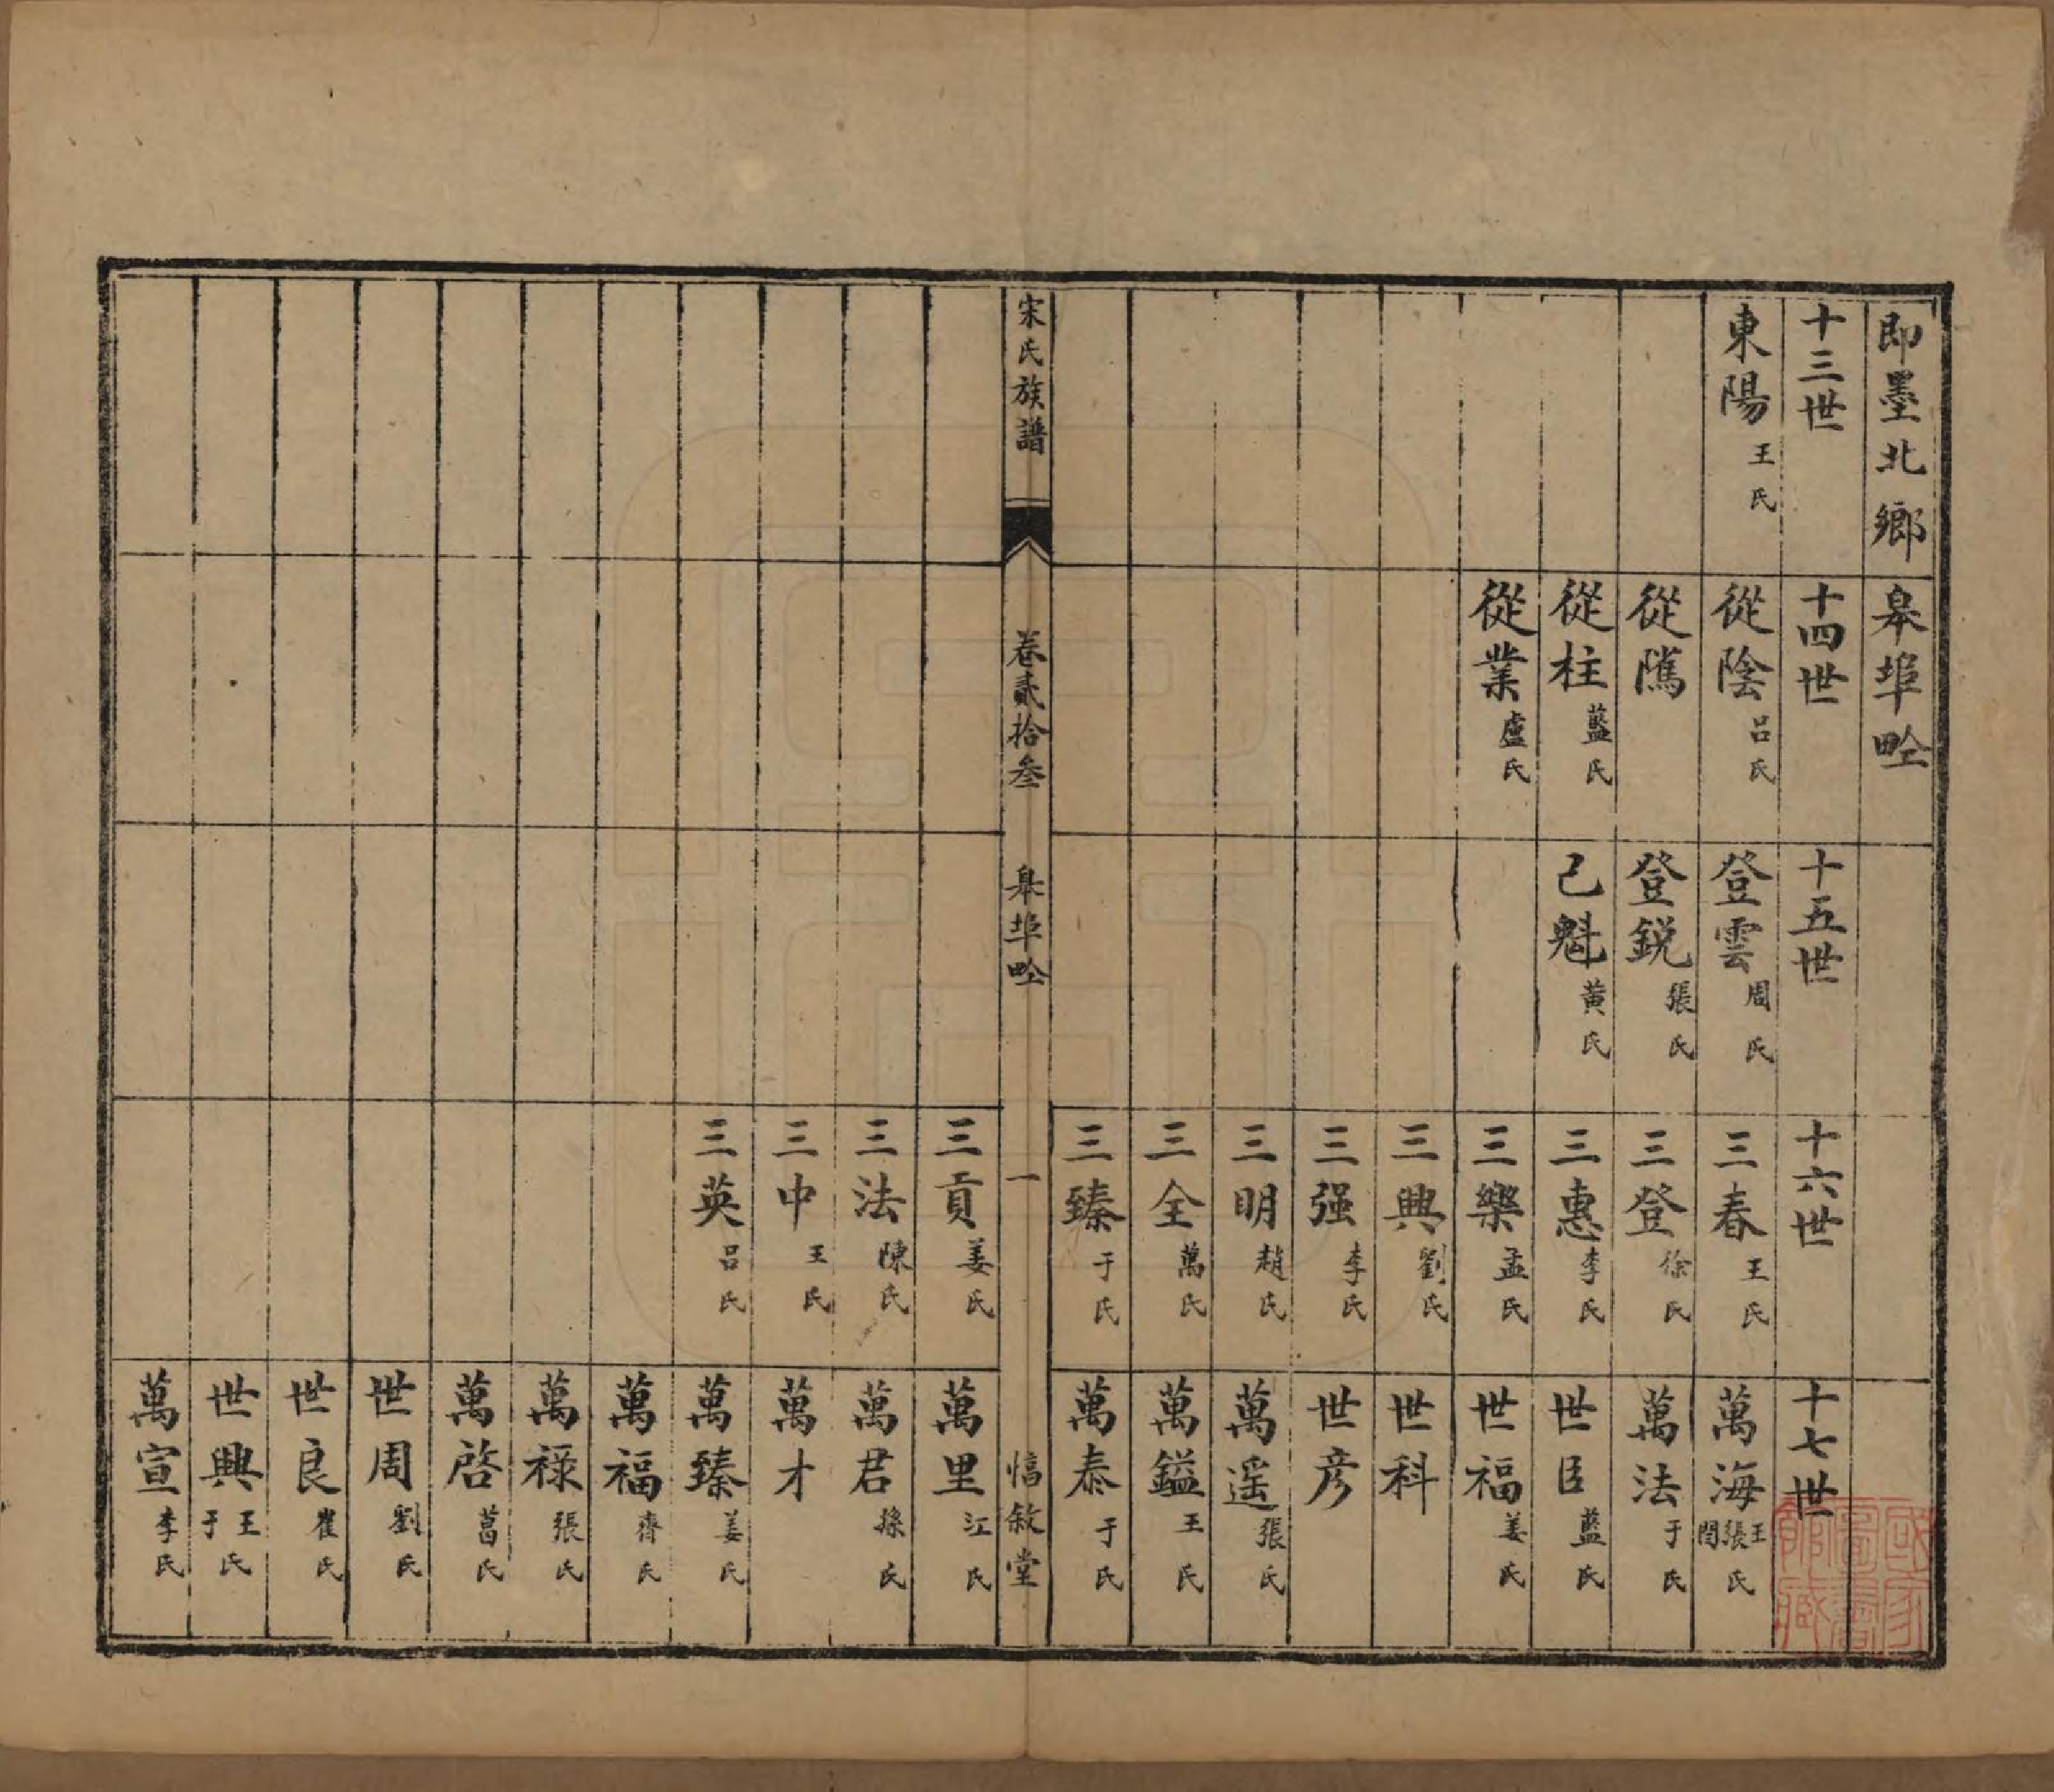 即墨北鄉 皋埠𪽪
十三世 十四世 十五世 十六世 十七世
東陽王氏 從陰呂氏 登雲周氏 三春王氏 萬海王張閆氏
從隲 登鋭張氏 三登徐氏 萬法于氏
從柱藍氏 己魁黄氏 三惠李氏 世臣藍氏
從業盧氏 三樂孟氏 世福姜氏
三興劉氏 世科
三强李氏 世彦
三明趙氏 萬遥張氏
三全萬氏 萬鎰王氏
三臻于氏 萬泰于氏
宋氏族譜 卷貳拾叁 皋埠𪽪 一 惇敘堂
三貢姜氏 萬里江氏
三法陳氏 萬君孫氏
三中王氏 萬才
三英呂氏 萬臻姜氏
萬福齊氏
萬禄張氏
萬啓葛氏
世周劉氏
世良崔氏
世興王于氏
萬宣李氏
國家圖書館藏